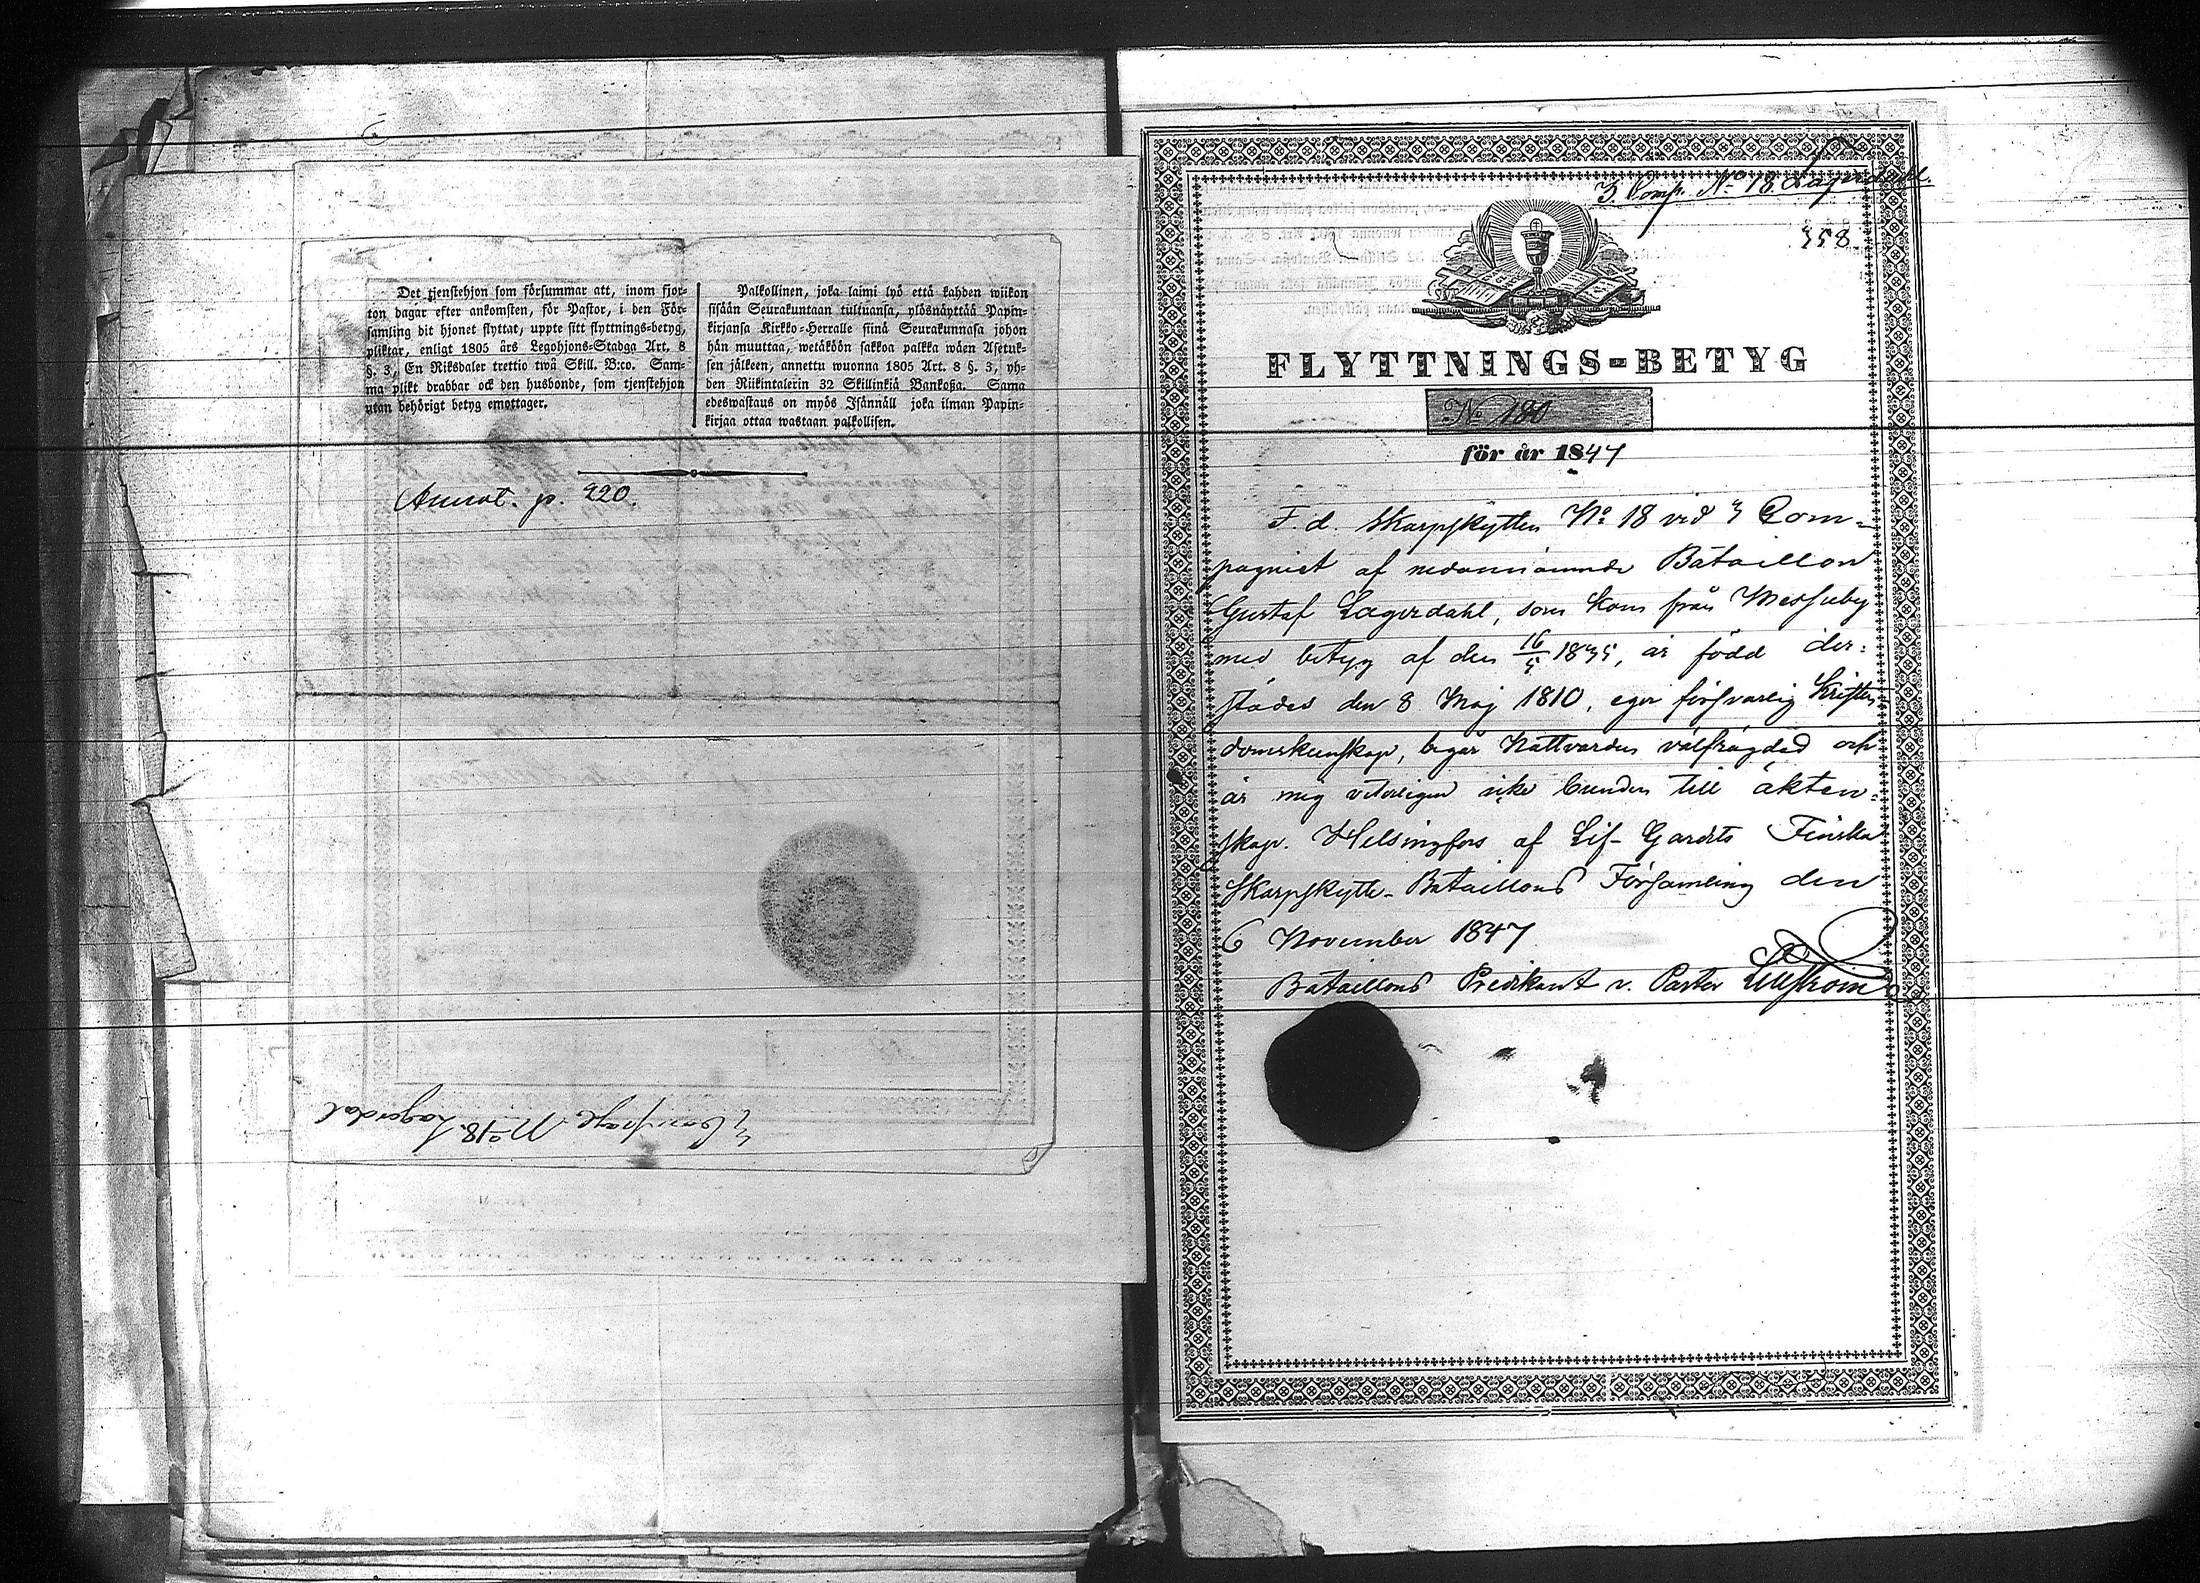 Det tjenstehjon som försummar att, inom fjor-
ton dagar efter ankomsten, för Pastor, i den För-
samling dit hjonet flyttat, uppte sitt flyttnings-betyg,
pliktar, enligt 1805 års Legohjons-Stadga Art. 8
§. 3, En Riksdaler trettio twå Skill. B:co. Sam-
ma plikt drabbar ock den husbonde, som tjenstehjon
utan behörigt betyg emottager.
Palkollinen, joka laimi lyö että kahden wiikon
sisään Seurakuntaan tultuansa, ylösnäyttää Papin-
kirjansa Kirkko-Herralle siinä Seurakunnasa johon
hän muuttaa, wetäköön sakkoa palkka wäen Asetuk-
sen jälkeen, annettu wuonna 1805 Art. 8 §. 3, yh-
den Riikintalerin 32 Skillinkiä Bankoßa. Sama
edeswastaus on myös Isännäll joka ilman Papin-
kirjaa ottaa wastaan palkollisen.
Annot. p. 220.
3 Compagn. No 18. Lagerdal
3. Comp. No 18 Lagerdahl.
358.
FLYTTNINGS-BETYG
No 180
för år 1847
F. d. Skarpskytten No 18 vid 3 Com-
pagniet af nedannämnde Bataillon
Gustaf Lagerdahl, som kom från Messuby
med betyg af den 16/5 1835, är född der-
städes den 8 Maj 1810, eger försvarlig Kristen-
domskunskap, begår Nattvarden välfrägdad och
är mig veterligen icke bunden till äkten-
skap. Helsingfors af Lif-Gardets Finska
Skarpskytte-Bataillons Församling den
6 November 1847
Bataillons Predikant v. Pastor